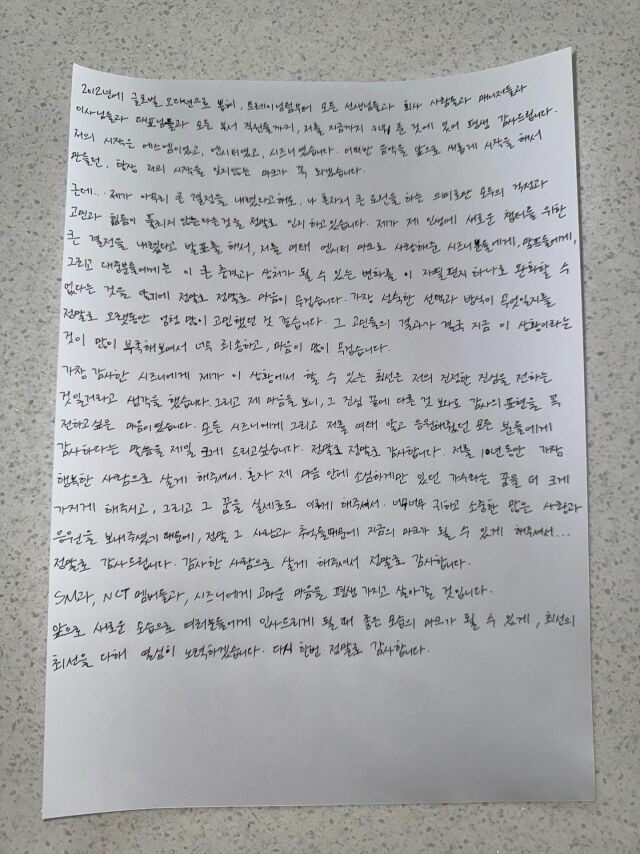 2012년에 글로벌 오디션으로 뽑혀, 트레이닝팀부터 모든 선생님들과 회사 사람들과 매니저들과
이사님들과 대표님들과 모든 부서 직원들까지, 저를 지금까지 키워 준 것에 있어 평생 감사드립니다.
저의 시작은 에스엠이었고, 엔시티였고, 시즈니였습니다. 어떠한 음악을 앞으로 새롭게 시작을 해서
만들던, 항상 저의 시작을 잊지않는 마크가 꼭 되겠습니다.
근데... 제가 아무리 큰 결정을 내렸다고해도, 나 혼자서 큰 도전을 하는 의미로만 모두의 걱정과
고민과 힘듦이 풀리지 않는다는것을 정말로 인지하고있습니다. 제가 제 인생에 새로운 챕터를 위한
큰 결정을 내렸다고 발표를 해서, 저를 여태 엔시티 마크로 사랑해준 시즈니분들에게, 맘프들에게,
그리고 대중분들에게는 이 큰 충격과 상처가 될 수 있는 변화를 이 자필편지 하나로 완화할 수
없다는 것을 알기에 정말로 정말로 마음이 무겁습니다. 가장 성숙한 선택과 방식이 무엇일지를
정말로 오랫동안 엄청 많이 고민했던 것 같습니다. 그 고민들의 결과가 결국 지금 이 상황이라는
것이 많이 부족해보여서 너무 죄송하고, 마음이 많이 무겁습니다.
가장 감사한 시즈니에게 제가 이 상황에서 할 수 있는 최선은 저의 진정한 진심을 전하는
것일거라고 생각을 했습니다. 그리고 제 마음을 보니, 그 진심 끝에 다른 것 보다도 감사의 표현을 꼭
전하고 싶은 마음이었습니다. 모든 시즈니에게 그리고 저를 여태 알고 응원해줬던 모든 분들에게
감사하다는 말씀을 제일 크게 드리고싶습니다. 정말로 정말로 감사합니다. 저를 10년동안 가장
행복한 사람으로 살게 해주셔서. 혼자 제 마음 안에 소심하게만 있던 가수라는 꿈을 더 크게
가지게 해주시고, 그리고 그 꿈을 실제로도 이뤄게 해주셔서. 너무너무 귀하고 소중한 많은 사랑과
응원을 보내주셨기 때문에, 정말 그 사랑과 추억들때문에 지금의 마크가 될 수 있게 해주셔서...
정말로 감사드립니다. 감사한 사람으로 살게 해주셔서 정말로 감사합니다.
SM과, NCT 멤버들과, 시즈니에게 고마운 마음을 평생 가지고 살아갈 것입니다.
앞으로 새로운 모습으로 여러분들에게 인사드리게 될 때 좋은 모습의 마크가 될 수 있게, 최선의
최선을 다해 열심히 노력하겠습니다. 다시 한번 정말로 감사합니다.